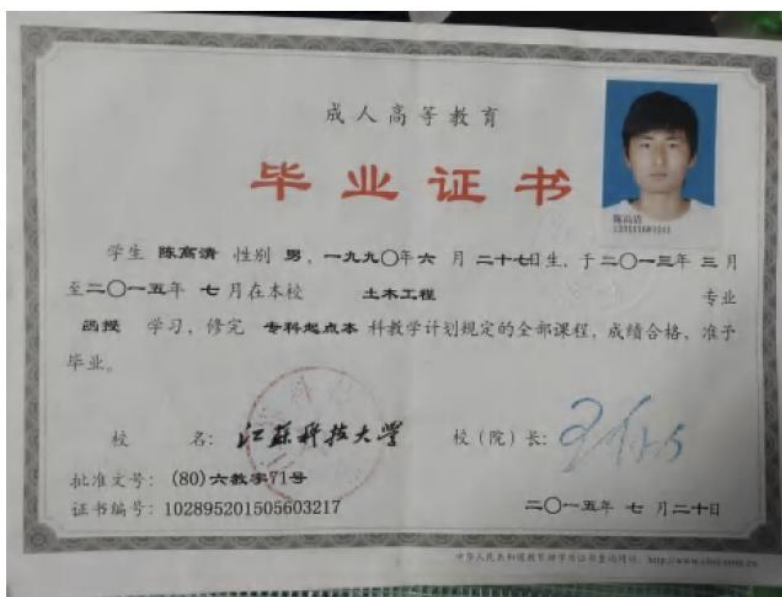 成人高等教育
毕业证书
陈高清
学生 陈高清 性别 男，一九九〇年 六 月 二十七日生，于二〇一三年 三 月
至二〇一五年 七 月在本校 土木工程 专业
函授 学习，修完 专科起点本 科教学计划规定的全部课程，成绩合格，准予
毕业。
校 名：江苏科技大学 校（院）长：
批准文号：(80)六教字71号
证书编号：102895201505603217 二〇一五年 七 月二十日
中华人民共和国教育部学历证书查询网址：http://www.chsi.com.cn